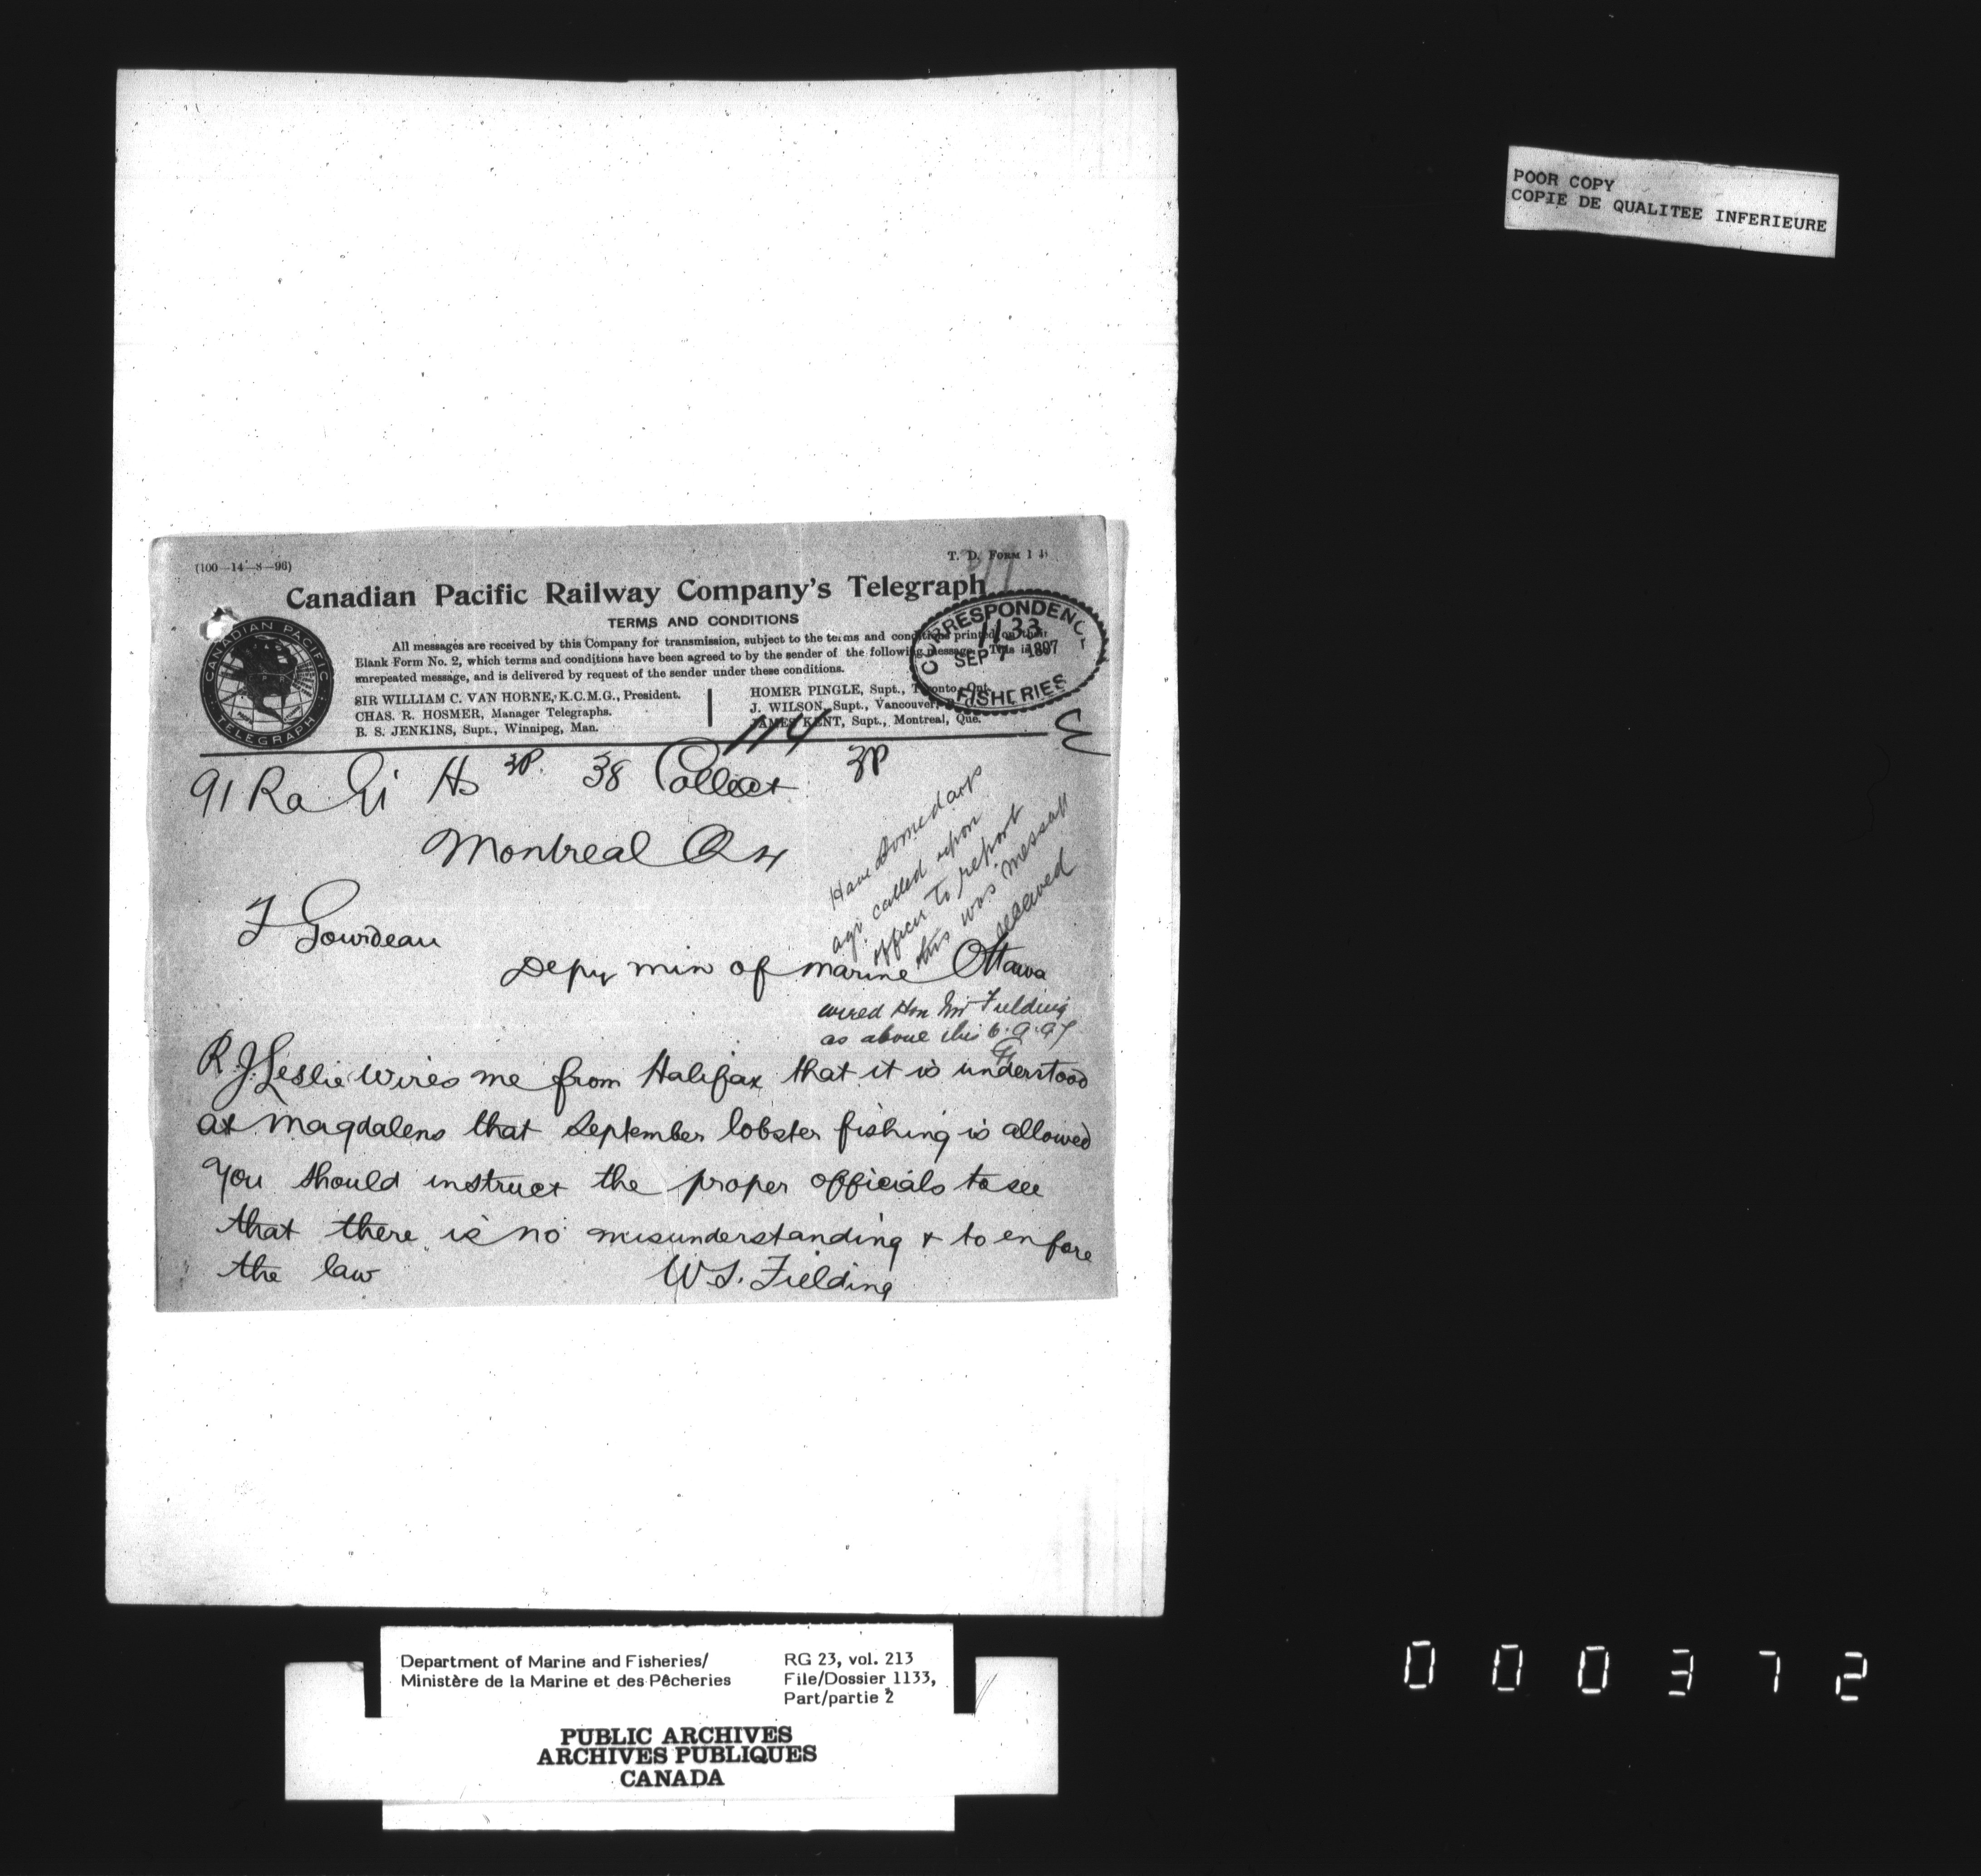 POOR COPY
COPIE DE QUALITEE INFERIEURE
(100—14—8—96)
T. D. FORM 1
Canadian Pacific Railway Company's Telegraph
TERMS AND CONDITIONS
All messages are received by this Company for transmission, subject to the terms and conditions printed on their
Blank Form No. 2, which terms and conditions have been agreed to by the sender of the following message. This is
unrepeated message, and is delivered by request of the sender under these conditions.
CANADIAN PACIFIC
TELEGRAPH
SIR WILLIAM C. VAN HORNE, K.C.M.G., President.
CHAS. R. HOSMER, Manager Telegraphs.
B. S. JENKINS, Supt., Winnipeg, Man.
HOMER PINGLE, Supt., Toronto, Ont.
J. WILSON, Supt., Vancouver,
JAMES KENT, Supt., Montreal, Que.
CORRESPONDENC
1133
SEP 7 1897
FISHERIES
114
91 Ra Hs 38 Collect
Montreal
F Gourdeau
Depy min of marine Ottawa
Have some days
ago called upon
officer to report
this was message
received
wired Hon Mr Fielding
as above this 6.9.97
R.J. Leslie wires me from Halifax that it is understood
at Magdalens that September lobster fishing is allowed
You should instruct the proper officials to see
that there is no misunderstanding & to enforce
the law W.S. Fielding
Department of Marine and Fisheries/
Ministère de la Marine et des Pêcheries
RG 23, vol. 213
File/Dossier 1133,
Part/partie 2
PUBLIC ARCHIVES
ARCHIVES PUBLIQUES
CANADA
000372